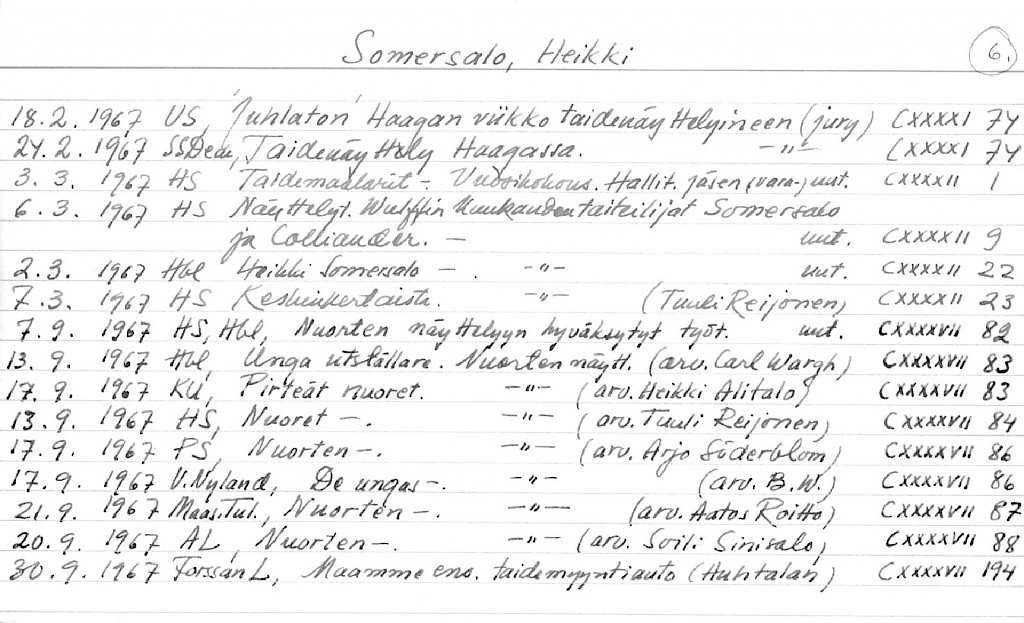 Somersalo, Heikki 6.
18.2. 1967 US, 'Juhlaton' Haagan viikko taidenäyttelyineen (jury) CXXXXI 74
24.2. 1967 SSDem, Taidenäyttely Haagassa. -"- CXXXXI 74
3.3. 1967 HS Taidemaalarit -. Vuosikokous. Hallit. jäsen (vara-) uut. CXXXXII 1
6.3. 1967 HS Näyttelyt. Wulffin Kuukauden taiteilijat Somersalo
ja Colliander. - uut. CXXXXII 9
2.3. 1967 Hbl Heikki Somersalo -. -"- uut. CXXXXII 22
7.3. 1967 HS Keskinkertaista. -"- (Tuuli Reijonen) CXXXXII 23
7.9. 1967 HS, Hbl, Nuorten näyttelyyn hyväksytyt työt. uut. CXXXXVII 82
13.9. 1967 Hbl, Unga utställare. Nuorten näytt. (arv. Carl Wargh) CXXXXVII 83
17.9. 1967 KU, Pirteät nuoret. -"- (arv. Heikki Alitalo) CXXXXVII 83
13.9. 1967 HS, Nuoret -. -"- (arv. Tuuli Reijonen) CXXXXVII 84
17.9. 1967 PS, Nuorten -. -"- (arv. Arjo Söderblom) CXXXXVII 86
17.9. 1967 V.Nyland, De ungas -. -"- (arv. B.W.) CXXXXVII 86
21.9. 1967 Maas.Tul., Nuorten -. -"- (arv. Aatos Roitto) CXXXXVII 87
20.9. 1967 AL, Nuorten -. -"- (arv. Soili Sinisalo) CXXXXVII 88
30.9. 1967 Forssan L, Maamme ens. taidemyyntiauto (Huhtalan) CXXXXVII 194